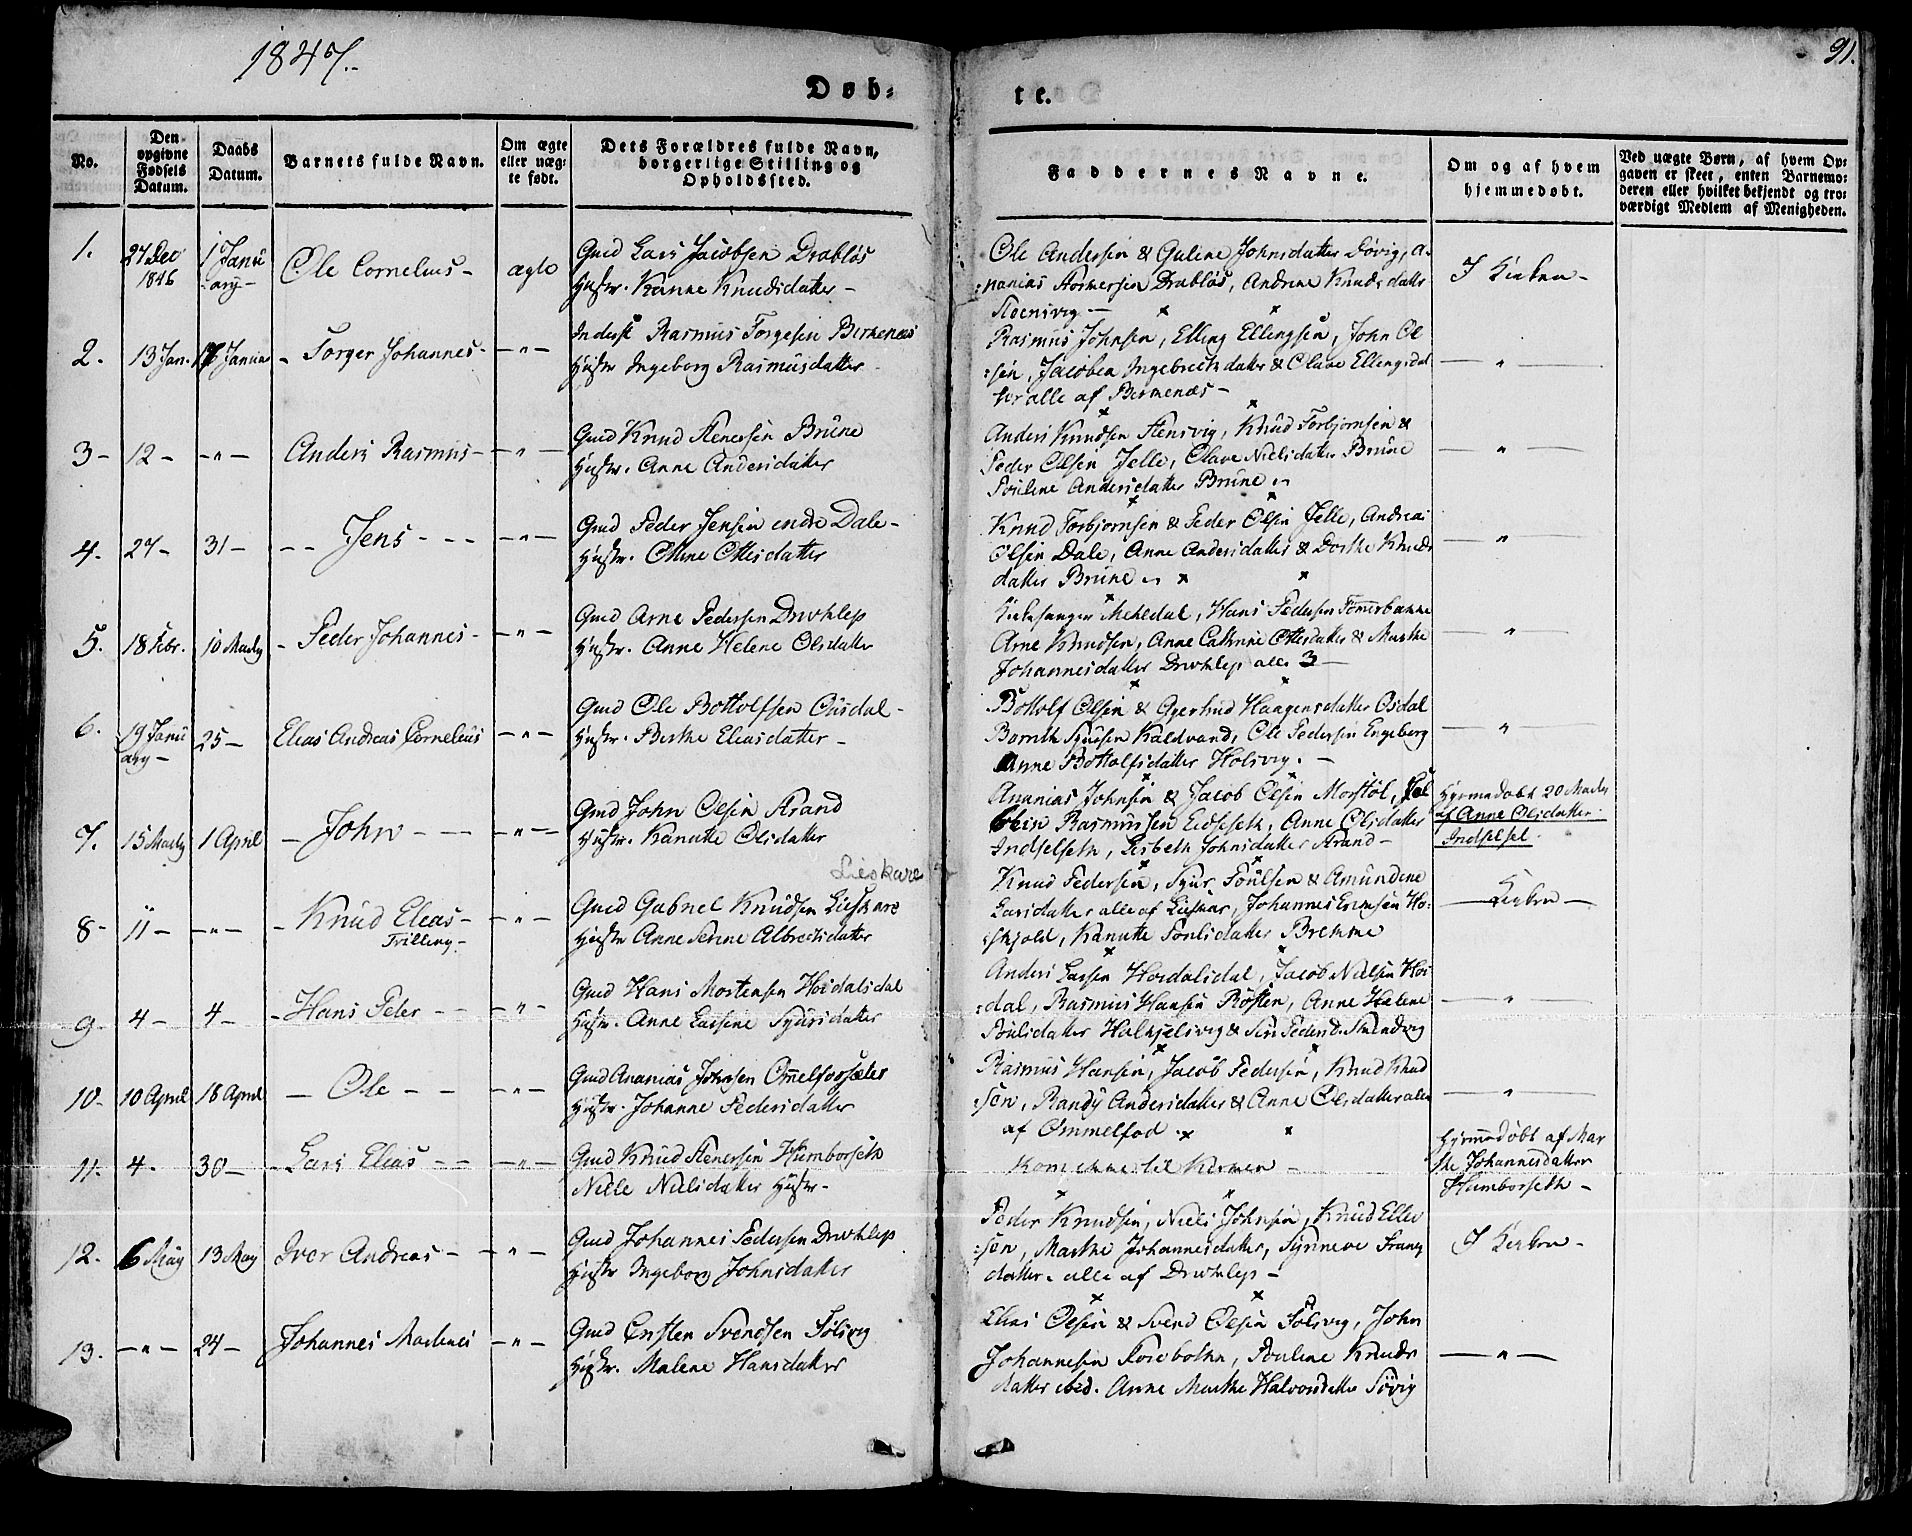 1847.
91.
Døb-
te.
No.
Den opgivne Fødsels Datum.
Daabs Datum.
Barnets fulde Navn.
Om ægte eller uæg-te født.
Dets Forældres fulde Navn, borgerlige Stilling og Opholdssted.
Faddernes Navne.
Om og af hvem hjemmedøbt.
Ved uægte Børn, af hvem Op-
gaven er skeet, enten Barnemo-
deren eller hvilket bekjendt og tro-
værdigt Medlem af Menigheden.
1. 27 Dec 1846 1 Janu ary- Ole Cornelius- ægte
Gmd Lars Jacobsen Drabløs
Hustr. Knudsdatter-
Ole Andersen & Guline Johnsdatter Døvig, A-
:nanias Drabløs, Andrine Knudsdatter
Steensvig-
I Kirken-
2. 13 Jan. 17 Januar - Torger Johannes- -"-
Inderst Rasmus Torgesen Birkenæs
Hustr Ingeborg Rasmusdatter-
Rasmus Johnsen, Elling Ellingsen, John Ol
:sen, Jacobea Ingebretsdatter & Olave Ellingsdat
ter alle af Birkenæs-
-"-
3- 12- -"- Anders Rasmus- -"-
Gmd Knud Stenersen Brune
Hustr. Anne Andersdatter
Anders Knudsen Stensvig, Knud Torbjornsen &
Peder Olsen Jelle, Olave Nielsdatter Brune
Pouline Andersdatter Brune
-"-
4. 27- 31- -- Jens- - - -"-
Gmd Peder Jensen Dale-
Hustr. Oline Ollesdatter
Knud Torbjornsen & Peder Olsen Jelle, Andreas
Olsen Dale, Anne Andersdatter & Dorthe Knuds
datter Brune
-"-
5. 18 Febr. 10 Marts - Peder Johannes- -"-
Gmd Arne Pedersen Drothlep
Hustr. Anne Helene Olsdatter
Kirkesanger Mehldal, Hans Pedersen
Arne Knudsen, Anne Cathrine & Marthe
Johannesdatter Drothlep alle 3-
-"-
6. 19 Janu ary- 25- Elias Andreas Cornelius -"-
Gmd Ole Bottolfsen Ousdal-
Hustr. Berthe Eliasdatter-
Bottolf Olsen & Agerthrud Haagensdatter Osdal
Kaldvand, Ole Pedersen Engeberg
Anne Bottolfsdatter Holsvig.-
-"-
7. 15 Marts 1 April - John- - - -"-
Gmd John Olsen Strand
Hustr. Kanutte Olsdatter
Ananias Johnsen & Jacob Olsen Morstøl,
Rasmussen Eidseth, Anne Olsdatter
Indselseth, Lisbeth Johnsdatter Strand-
Hjemmedøbt 20 Marts
af Anne Olsdatter
Indselset.
Lieskare
8- 11- -"- - Knud Elias- -"-
Tvilling-
Gmd Gabriel Knudsen Lieskare
Hustr Anne Albretsdatter
Knud Pedersen, Sjur Poulsen & Amundine
Larsdatter alle af Lieskar, Johannes Ho-
:skjold, Kanutte Poulsdatter Bremme
-Kirken-
9. 4- 4- - Hans Peter- - -"-
Gmd Hans Mortensen Hovdalsdal
Hustr. Anne Larsine Sjursdatter
Anders Larsen Hovdalsdal, Jacob Nielsen Hov
:dal, Rasmus Hansen Røften, Anne Helene
Poulsdatter & Strandvig
-"-
10- 10 April 18 April - Ole- - -"-
Gmd Ananias Johnsen Ommelforsæter
Hustr. Johanne Pedersdatter
Rasmus Hansen, Jacob Pedersen, Knud Knud
:sen, Randi Andersdatter & Anne Olsdatter alle
af Ommelfod
-"-
11. 4. 30- - Lars Elias- - -"-
Gmd Knud Stenersen Humborseth
Nille Nielsdatter Hustr-
Kom ikke til Kirken-
Hjemmedøbt af Mar
the Johannesdatter
Humborseth-
12. 6 May 13 May Iver Andreas- -"-
Gmd Johannes Pedersen Drothlep
Hustr Ingeborg Johnsdatter
Peder Knudsen, Niels Johnsen, Knud Elle
:sen, Marthe Johannesdatter, Synneve Frants
datter. alle af Drothlep-
I Kirken-
13. -"- 24- Johannes Martinus -"-
Gmd Svendsen Sølsvig
Hustr. Malene Hansdatter
Elias Olsen & Svend Olsen Sølsvig, John
Johannesen, Pouline Knuds
datter ibid. Anne Marthe Halvorsdatter Søvig
-"-